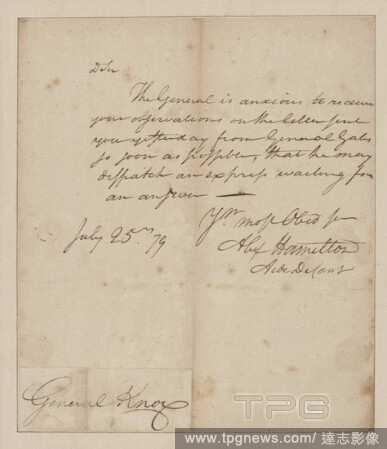 D Sir
The General is anxious to receive
your observations on the letter sent
you yesterday from General Gates
so soon as possible, that he may
dispatch an express waiting for
an answer —
Yr. most Obed ser
Alex Hamilton
Aide De Camp
July 25th. 79
General Knox
TPG
www.tpgnews.com/達志影像